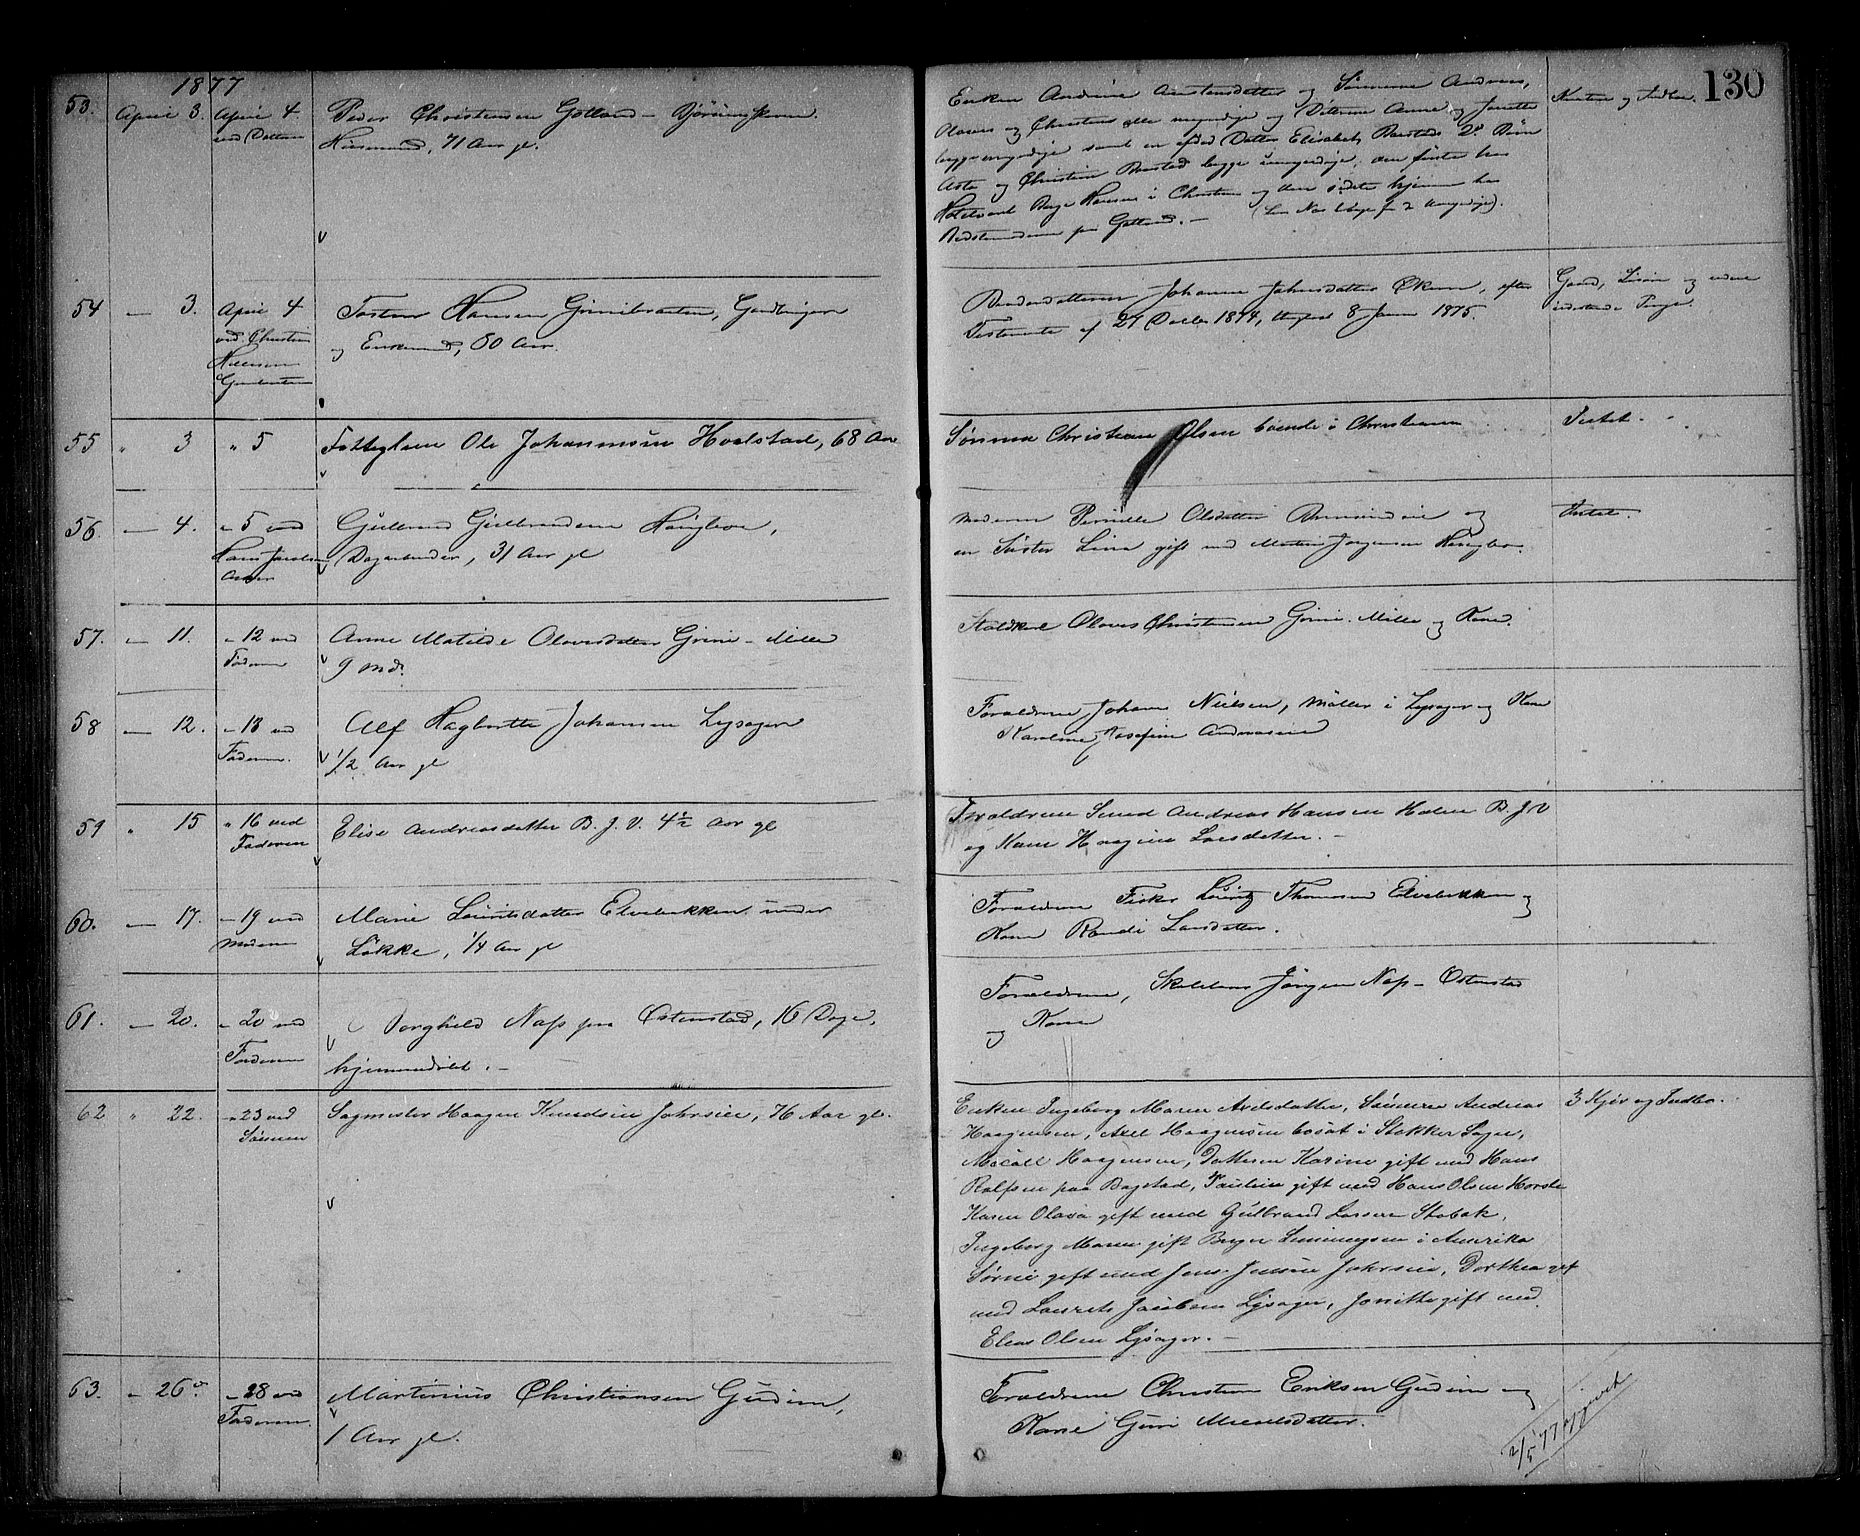 130
1877
53. April 3. April 4 ved Datteren
Peder Christensen Gotland - Bjørningstuen.
Huusmand, 71 Aar gl.
Enken Andrine Amtensdatter og Sønnerne Andreas,
Olaves og Christens alle myndige og Døttrene Anne og Janette
begge umyndige samt en afdød Datter Elisabeth Brestads 2de Børn
og Christine Brestad begge umyndige, den første hos
i Christian og den sidste hjemme hos
Bedstemoderen paa Gotland. -
54 — 3. April 4 ved Christian Nilsen Grinibraaten
Torsten Hansen Grinibraaten, Gaardbruger
og Enkemand, 80 Aar.
Broderdatteren Johanne Johnsdatter efter
Testamente af 27 Decbr 1874, 8 Januar 1875.
Gaard, Løsøre og
Penge.
55 " 3 " 5
Fattiglem Ole Johannesen Hvalstad, 68 Aar
Sønnen Christian Olsen boende i Christiania
Intet.
56. — 4. " 5 ved Hans Jacobsen
Gulbrand Gulbrandsen Haugbro,
Dagarbeider, 31 Aar gl
Moderen Pernille Olsdatter og
en Søster Lina gift med Morten Jørgensen Haugbro.
Intet.
57. — 11. " 12 ved Faderen
Anne Matilde Olavesdatter Grini - Mille
9 Md.
Staldkarl Olaves Christensen Grini - Mille og Kone.
58 — 12. " 13 ved Faderen.
Alf Hagbarth Johansen Lysager
1/2 Aar gl
Forældrene Johan Nielsen, Møller i Lysager og Kone
Karoline Josefine Andreasen
59 " 15 " 16 ved Faderen
Elise Andreasdatter B. J. V. 4½ Aar gl
Forældrene Smed Andreas Hansen Holm B. J. V
og Kone Haagine Larsdatter. -
60. — 17. " 19 ved Moderen
Marie Louritsdatter Elvebakken under
Løkke, 1/4 Aar gl
Forældrene Fisker Louritz Thomesen Elvebakken og
Kone Randi Larsdatter.
61. — 20. " 20 ved Faderen
Borghild Næss paa Østenstad, 16 Dage,
hjemmedøbt. -
Forældrene, Skolelærer Jørgen Næss - Østenstad
og Kone
62 " 22. " 23 ved Sønnen
Sagmester Haagen Knudsen Jahrsien, 76 Aar gl.
Enken Ingeborg Maren Axelsdatter, Sønnerne Andreas
Haagensen, Axel Haagensen bosat i Stokker Sogn,
Micall Haagensen, Datteren Karine gift med Hans
Rolfsen paa Bagstad, Pauline gift med Hans Olsen Horsle
Karen Olava gift med Gulbrand Larsen Stabæk,
Ingeborg Maren gift Birger Simmingsen i Amerika
Sørine gift med Jens Jensen Jahrsien, Dorthea gift
med Laurets Jacobsen Lysager, Jonitte gift med
Elias Olsen Lysager. -
3 Kjør og Indbo.
63. — 26de " 28 ved Faderen.
Martinius Christiansen Gudim,
1 Aar gl.
Forældrene Christian Eriksen Gudim og
Kone Guri Micaelsdatter.
2/5 77